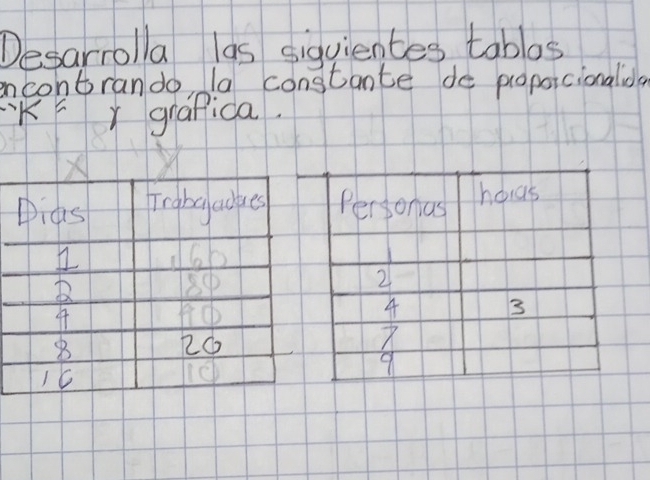 Desarrolla las siguientes tablas
encontrando la constante de proporcionalida
"K" y gráfica.
X Y
Dias Trabajadores
1 160
2 80
4 40
8 20
16 10
Personas horas
1
2
4 3
7
9